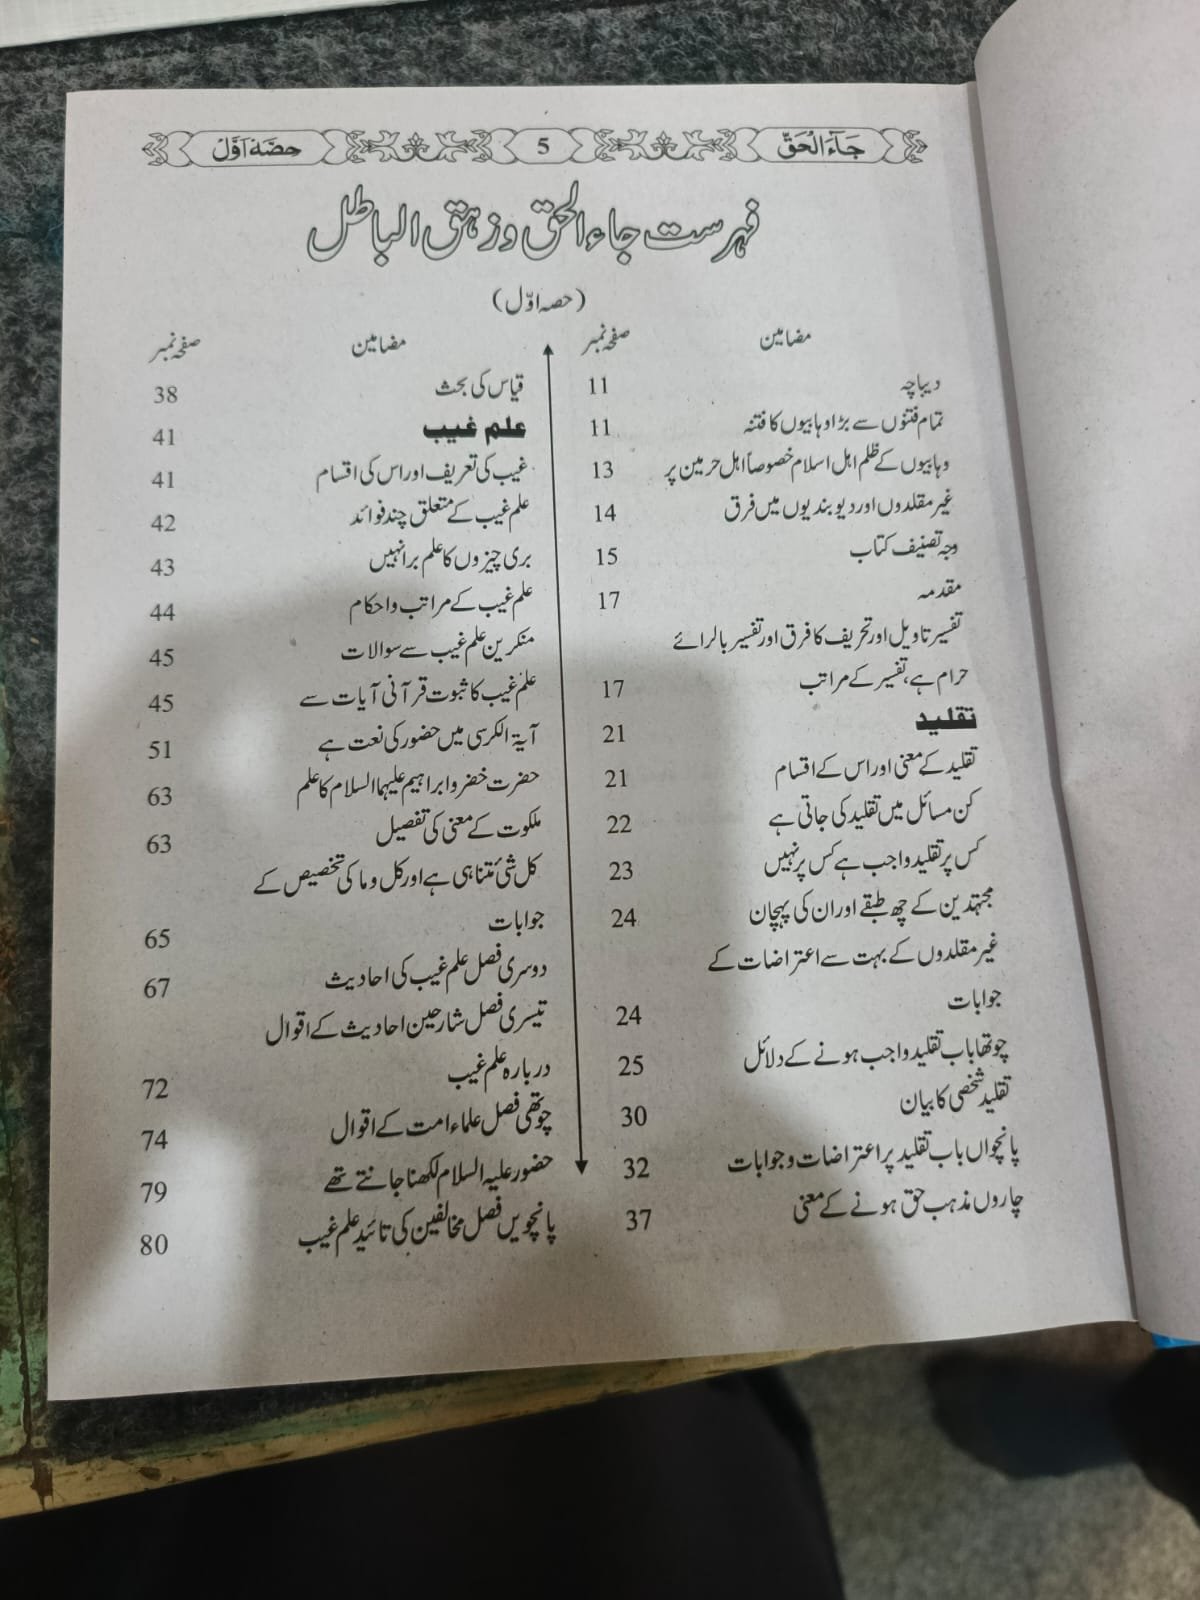 جَآءَالْحَقّ
5
حصّہ اوّل
فہرست جاء الحق وزہق الباطل
(حصہ اوّل)
مضامین صفحہ نمبر
دیباچہ 11
تمام فتنوں سے بڑا وہابیوں کا فتنہ 11
وہابیوں کے ظلم اہل اسلام خصوصاً اہل حرمین پر 13
غیر مقلدوں اور دیوبندیوں میں فرق 14
وجہ تصنیف کتاب 15
مقدمہ 17
تفسیر تاویل اور تحریف کا فرق اور تفسیر بالرائے
حرام ہے، تفسیر کے مراتب 17
تقلید 21
تقلید کے معنی اور اس کے اقسام 21
کن مسائل میں تقلید کی جاتی ہے 22
کس پر تقلید واجب ہے کس پر نہیں 23
مجتہدین کے چھ طبقے اور ان کی پہچان 24
غیر مقلدوں کے بہت سے اعتراضات کے
جوابات 24
چوتھا باب تقلید واجب ہونے کے دلائل 25
تقلید شخصی کا بیان 30
پانچواں باب تقلید پر اعتراضات و جوابات 32
چاروں مذہب حق ہونے کے معنی 37
مضامین صفحہ نمبر
قیاس کی بحث 38
علم غیب 41
غیب کی تعریف اور اس کی اقسام 41
علم غیب کے متعلق چند فوائد 42
بری چیزوں کا علم برا نہیں 43
علم غیب کے مراتب و احکام 44
منکرین علم غیب سے سوالات 45
علم غیب کا ثبوت قرآنی آیات سے 45
آیۃ الکرسی میں حضور کی نعت ہے 51
حضرت خضر و ابراہیم علیہما السلام کا علم 63
ملکوت کے معنی کی تفصیل 63
کل شئ متناہی ہے اور کل و ما کی تخصیص کے
جوابات 65
دوسری فصل علم غیب کی احادیث 67
تیسری فصل شارحین احادیث کے اقوال
دربارہ علم غیب 72
چوتھی فصل علماء امت کے اقوال 74
حضور علیہ السلام لکھنا جانتے تھے 79
پانچویں فصل مخالفین کی تائید علم غیب 80